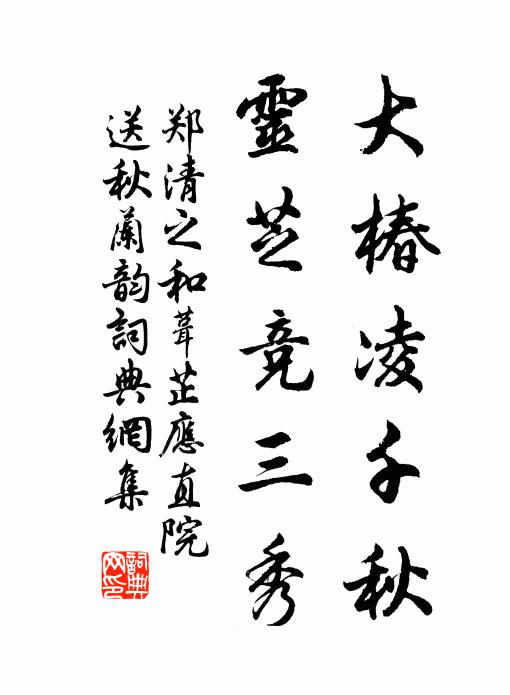 大椿凌千秋
靈芝竞三秀
郑清之和葺芷應直院
送秋蘭韵詞典網集
詞典网印